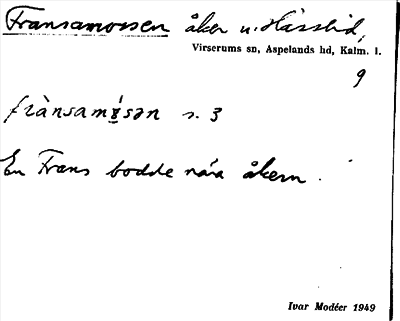 Fransamossen åker u. Hässlid,
Virserums sn, Aspelands hd, Kalm. l.
9
frànsamǻsən s. 3
En Frans bodde nära åkern.
Ivar Modéer 1949